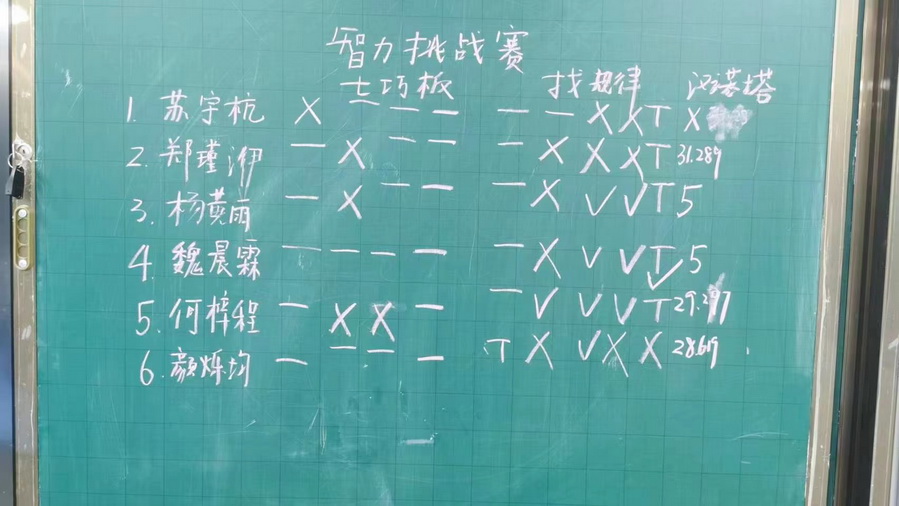 智力挑战赛
七巧板 找规律 汉诺塔
1. 苏宇杭 X — — — — — X X T X
2. 郑瑾 — X — — — X X X T 31.289
3. 杨 雨 — X — — — X √ √ T 5
4. 魏晨霖 — — — — — X √ √ T √ 5
5. 何梓程 — X X — — √ √ √ T
6. 颜烁均 — — — — T X √ X X 28.619